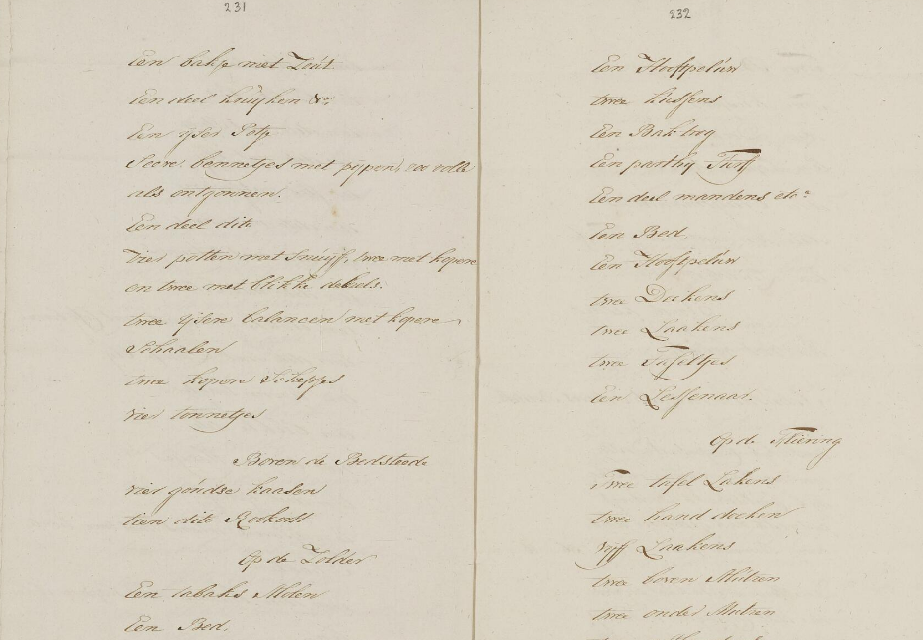 231
Een bakje met Zout
Een deel kruyken &c:
Een yser Potje
Seeve bennetjes met pijpen, zoo volle
als ontgonnen.
Een deel dito
Vier potten met Snuyff, twee met kopere
en twee met blikke deksels.
twee ysere balancen met kopere
Schaalen
twee kopere Schepjes
vier tonnetjes
Boven de Bedsteede
vier goudse kaasen
tien dito
Op de Zolder
Een tabaks Molen
Een Bed.
232
Een Hooftpeluw
twee kussens
Een Baktrog
Een parthy Turf
Een deel mandens etc:
Een Bed
Een Hooftpeluw
twee Deekens
twee Laakens
twee Tafeltjes
Een Lessenaar.
Op de Fliering
Twee tafel Lakens
twee hand doeken
vyff Laakens
twee boven Mutzen
twee onder Mutzen